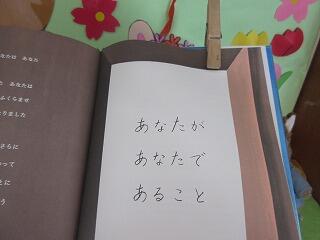 あなたが
あなたで
あること
なたは　あなた
あなたは
ふくらませ
りました
さらに